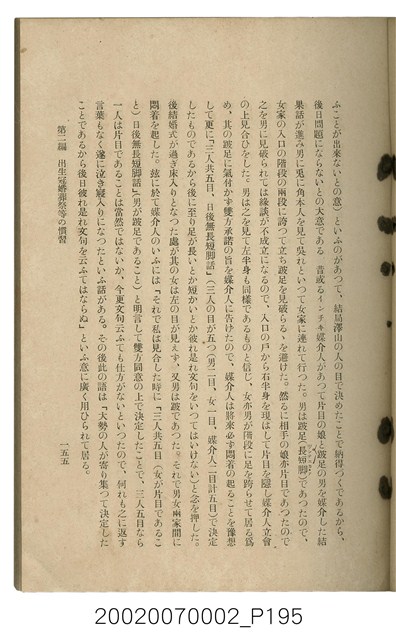 ふことが出来ないとの意）といふのがあつて、結局澤山の人の目で決めたことで納得づくであるから、
後日問題にならないとの大意である　昔或るインチキ媒介人があつて片目の娘と跛足の男を媒介した結
果話が進み男に兎に角本人を見て呉れといつて女家に連れて行つた。男は跛足（長短脚）であつたので、
女家の入口の階段の兩段に跨つて立ち跛足を見破らるゝを避けた。然るに相手の娘亦片目であつたので
之を男に見破られては縁談が不成立になるので、入口の戸から右半身を現はして片目を隱し媒介人立會
の上見合ひをした。男は之を見て左半身も同樣であるものと信じ、女亦男が階段に足を跨らせて居る爲
め、其の跛足に氣付かず雙方承諾の旨を媒介人に告げたので、媒介人は將來必ず悶着の起ることを豫想
して更に「三人共五目、日後無長短脚話」（三人の目が五つ（男二目、女一目、媒介人二目計五目）で決定
したものであるから後に至り足が長いとか短かいとか彼れ是れ文句をいつてはいけない）と念を押した。
後結婚式が過ぎ床入りとなつた處が其の女は左の目が見えず、又男は跛であつた。それで男女兩家間に
悶着を起した。玆に於て媒介人のいふには「それで私は見合した時に「三人共五目（女が片目であるこ
と）日後無長短脚話」（男が跛足であること）と明言して雙方同意の上で決定したことで、三人五目なら
一人は片目であることは當然ではないか、今更文句云ふても仕方がないといつたので、何れも之に返す
言葉もなく遂に泣き寢入りになつたといふ話がある。その後此の語は「大勢の人が寄り集つて決定した
ことであるから後日彼れ是れ文句を云ふてはならぬ」といふ意に廣く用ひられて居る。
第二編　出生冠婚葬祭等の慣習
一五五
20020070002_P195